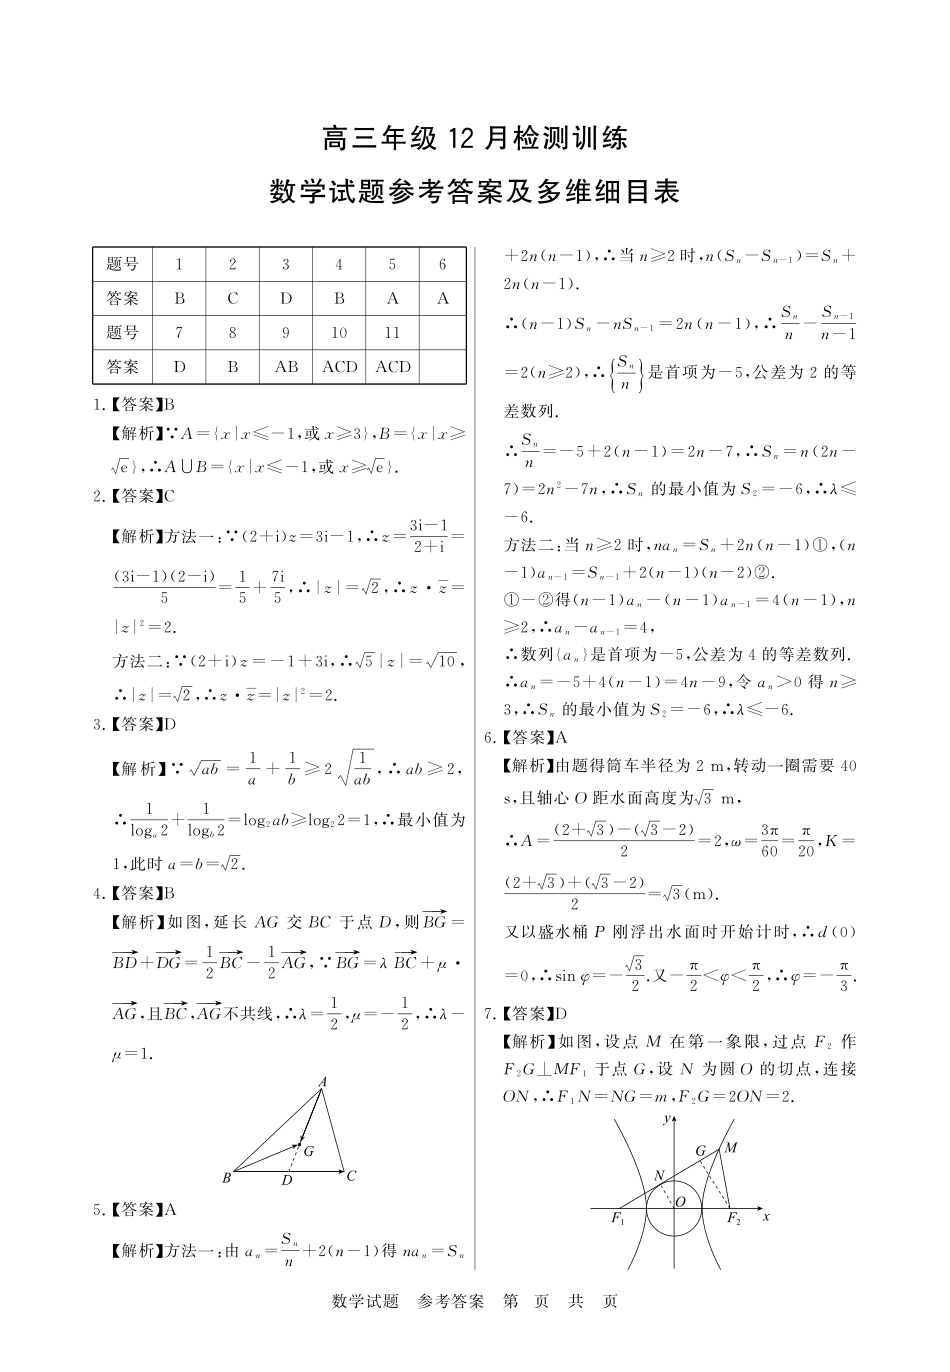 高三年级 12 月检测训练
数学试题参考答案及多维细目表
题号 1 2 3 4 5 6
答案 B C D B A A
题号 7 8 9 10 11
答案 D B AB ACD ACD
1.【答案】B
【解析】∵A={x|x≤-1,或 x≥3},B={x|x≥
√e},∴A∪B={x|x≤-1,或 x≥√e}.
2.【答案】C
【解析】方法一:∵(2+i)z=3i-1,∴z=(3i-1)/(2+i)=
(3i-1)(2-i)/5=1/5+7i/5,∴|z|=√2,∴z·z̅=
|z|²=2.
方法二:∵(2+i)z=-1+3i,∴√5|z|=√10,
∴|z|=√2,∴z·z̅=|z|²=2.
3.【答案】D
【解析】∵√ab=1/a+1/b≥2√(1/ab),∴ab≥2,
∴1/logₐ2+1/log_b2=log₂ab≥log₂2=1,∴最小值为
1,此时 a=b=√2.
4.【答案】B
【解析】如图,延长 AG 交 BC 于点 D,则BG→=
BD→+DG→=1/2BC→-1/2AG→,∵BG→=λBC→+μ·
AG→,且BC→,AG→不共线,∴λ=1/2,μ=-1/2,∴λ-
μ=1.
A
G
B D C
5.【答案】A
【解析】方法一:由 aₙ=Sₙ/n+2(n-1)得 naₙ=Sₙ
+2n(n-1),∴当 n≥2 时,n(Sₙ-Sₙ₋₁)=Sₙ+
2n(n-1).
∴(n-1)Sₙ-nSₙ₋₁=2n(n-1),∴Sₙ/n-Sₙ₋₁/(n-1)
=2(n≥2),∴{Sₙ/n}是首项为-5,公差为 2 的等
差数列.
∴Sₙ/n=-5+2(n-1)=2n-7,∴Sₙ=n(2n-
7)=2n²-7n,∴Sₙ 的最小值为 S₂=-6,∴λ≤
-6.
方法二:当 n≥2 时,naₙ=Sₙ+2n(n-1)①,(n
-1)aₙ₋₁=Sₙ₋₁+2(n-1)(n-2)②.
①-②得(n-1)aₙ-(n-1)aₙ₋₁=4(n-1),n
≥2,∴aₙ-aₙ₋₁=4,
∴数列{aₙ}是首项为-5,公差为 4 的等差数列.
∴aₙ=-5+4(n-1)=4n-9,令 aₙ>0 得 n≥
3,∴Sₙ 的最小值为 S₂=-6,∴λ≤-6.
6.【答案】A
【解析】由题得筒车半径为 2 m,转动一圈需要 40
s,且轴心 O 距水面高度为√3 m,
∴A=((2+√3)-(√3-2))/2=2,ω=3π/60=π/20,K=
((2+√3)+(√3-2))/2=√3(m).
又以盛水桶 P 刚浮出水面时开始计时,∴d(0)
=0,∴sin φ=-√3/2.又-π/2<φ<π/2,∴φ=-π/3.
7.【答案】D
【解析】如图,设点 M 在第一象限,过点 F₂ 作
F₂G⊥MF₁ 于点 G,设 N 为圆 O 的切点,连接
ON,∴F₁N=NG=m,F₂G=2ON=2.
y
G M
N
O
F₁ F₂ x
数学试题 参考答案 第 页 共 页